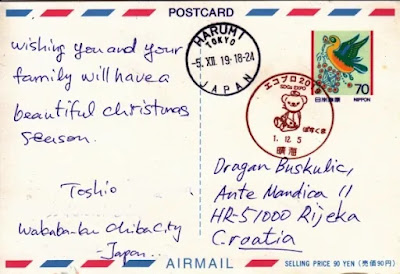 POSTCARD
wishing you and your
family will have a
beautiful christmas
season.
Toshio
Wababa-ku Chiba City
Japan..
HARUMI
TOKYO
-5. XII. 19-18-24
JAPAN
エコプロ20
SDGs EXPO
ぽすくま
1. 12. 5
晴海
70
日本郵便
NIPPON
Dragan Buskulic,
Ante Mandica 11
HR-51000 Rijeka
Croatia
AIRMAIL
SELLING PRICE 90 YEN (売価90円)